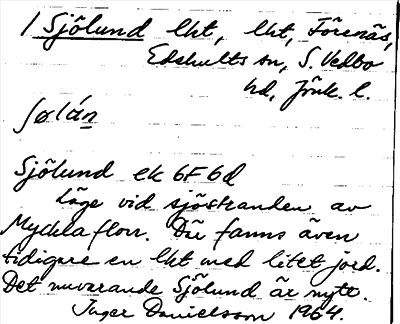 / Sjölund lht, lht, Förenäs,
Edshults sn, S. Vedbo
hd, Jönk. l.
ʃølán
Sjölund ek 6F 6d
Läge vid sjöstranden av
Myckla flon. Där fanns även
tidigare en lht med litet jord.
Det nuvarande Sjölund är nytt.
Inger Danielsson 1964.